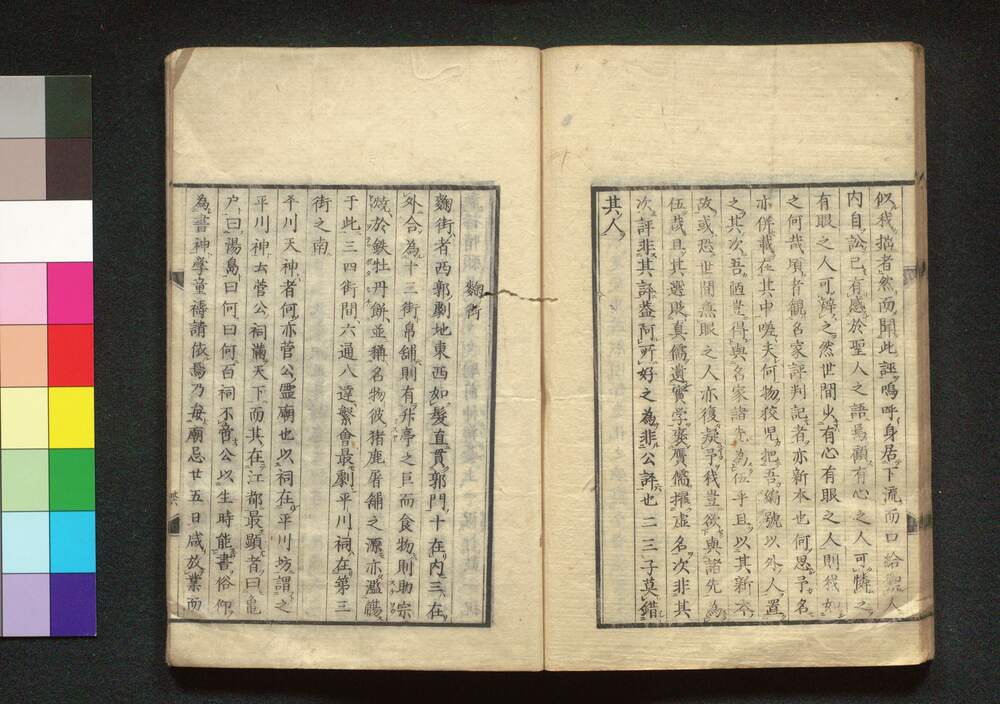 似我𢪸者然而聞此誣嗚呼身居下流而口給禦人
内自訟已有感於聖人之語焉顧有心之人可憐之
有眼之人可辨之然世間少有心有眼之人則我如
之何哉頃者觀名家評判記者亦新本也何思予名
亦併載在其中嗟夫何物狡児把吾編號以外人置
之其次吾豈得與名家諸先為伍乎且以其新本
故或恐世間無眼之人亦復疑予我豈欲與諸先為
伍哉且其選既真儒遺實学褒贋儒擢虚名次非其
次評非其評蓋阿所好之為非公評也二三子莫錯
其人
麹街
麹街者西郭劇地東西如髮直貫郭門十在内三在
外合為十三街帛舖則有升亭之巨而食物則助宗
燒於鉄牡丹餅並稱名物彼猪鹿屠舖之源亦濫觴
于此三四街間六通八達繁會最劇平川祠在第三
街之南
平川天神者何亦菅公靈廟也以祠在平川坊謂之
平川神云菅公祠滿天下而其在江都最顕者曰亀
戸曰湯島曰何曰何百祠不啻公以生時能書俗仰
為書神学童禱請依焉乃毎廟忌廿五日咸放業而